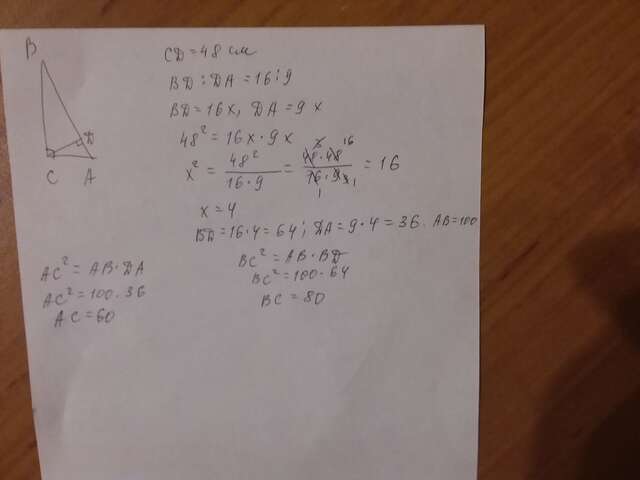 B
D
C A
CD = 48 см
BD : DA = 16 : 9
BD = 16x, DA = 9x
48² = 16x · 9x
x² = 48² / 16 · 9 = 48 · 48 / 16 · 9 = 16
x = 4
BD = 16 · 4 = 64 ; DA = 9 · 4 = 36. AB = 100
AC² = AB · DA
AC² = 100 · 36
AC = 60
BC² = AB · BD
BC² = 100 · 64
BC = 80